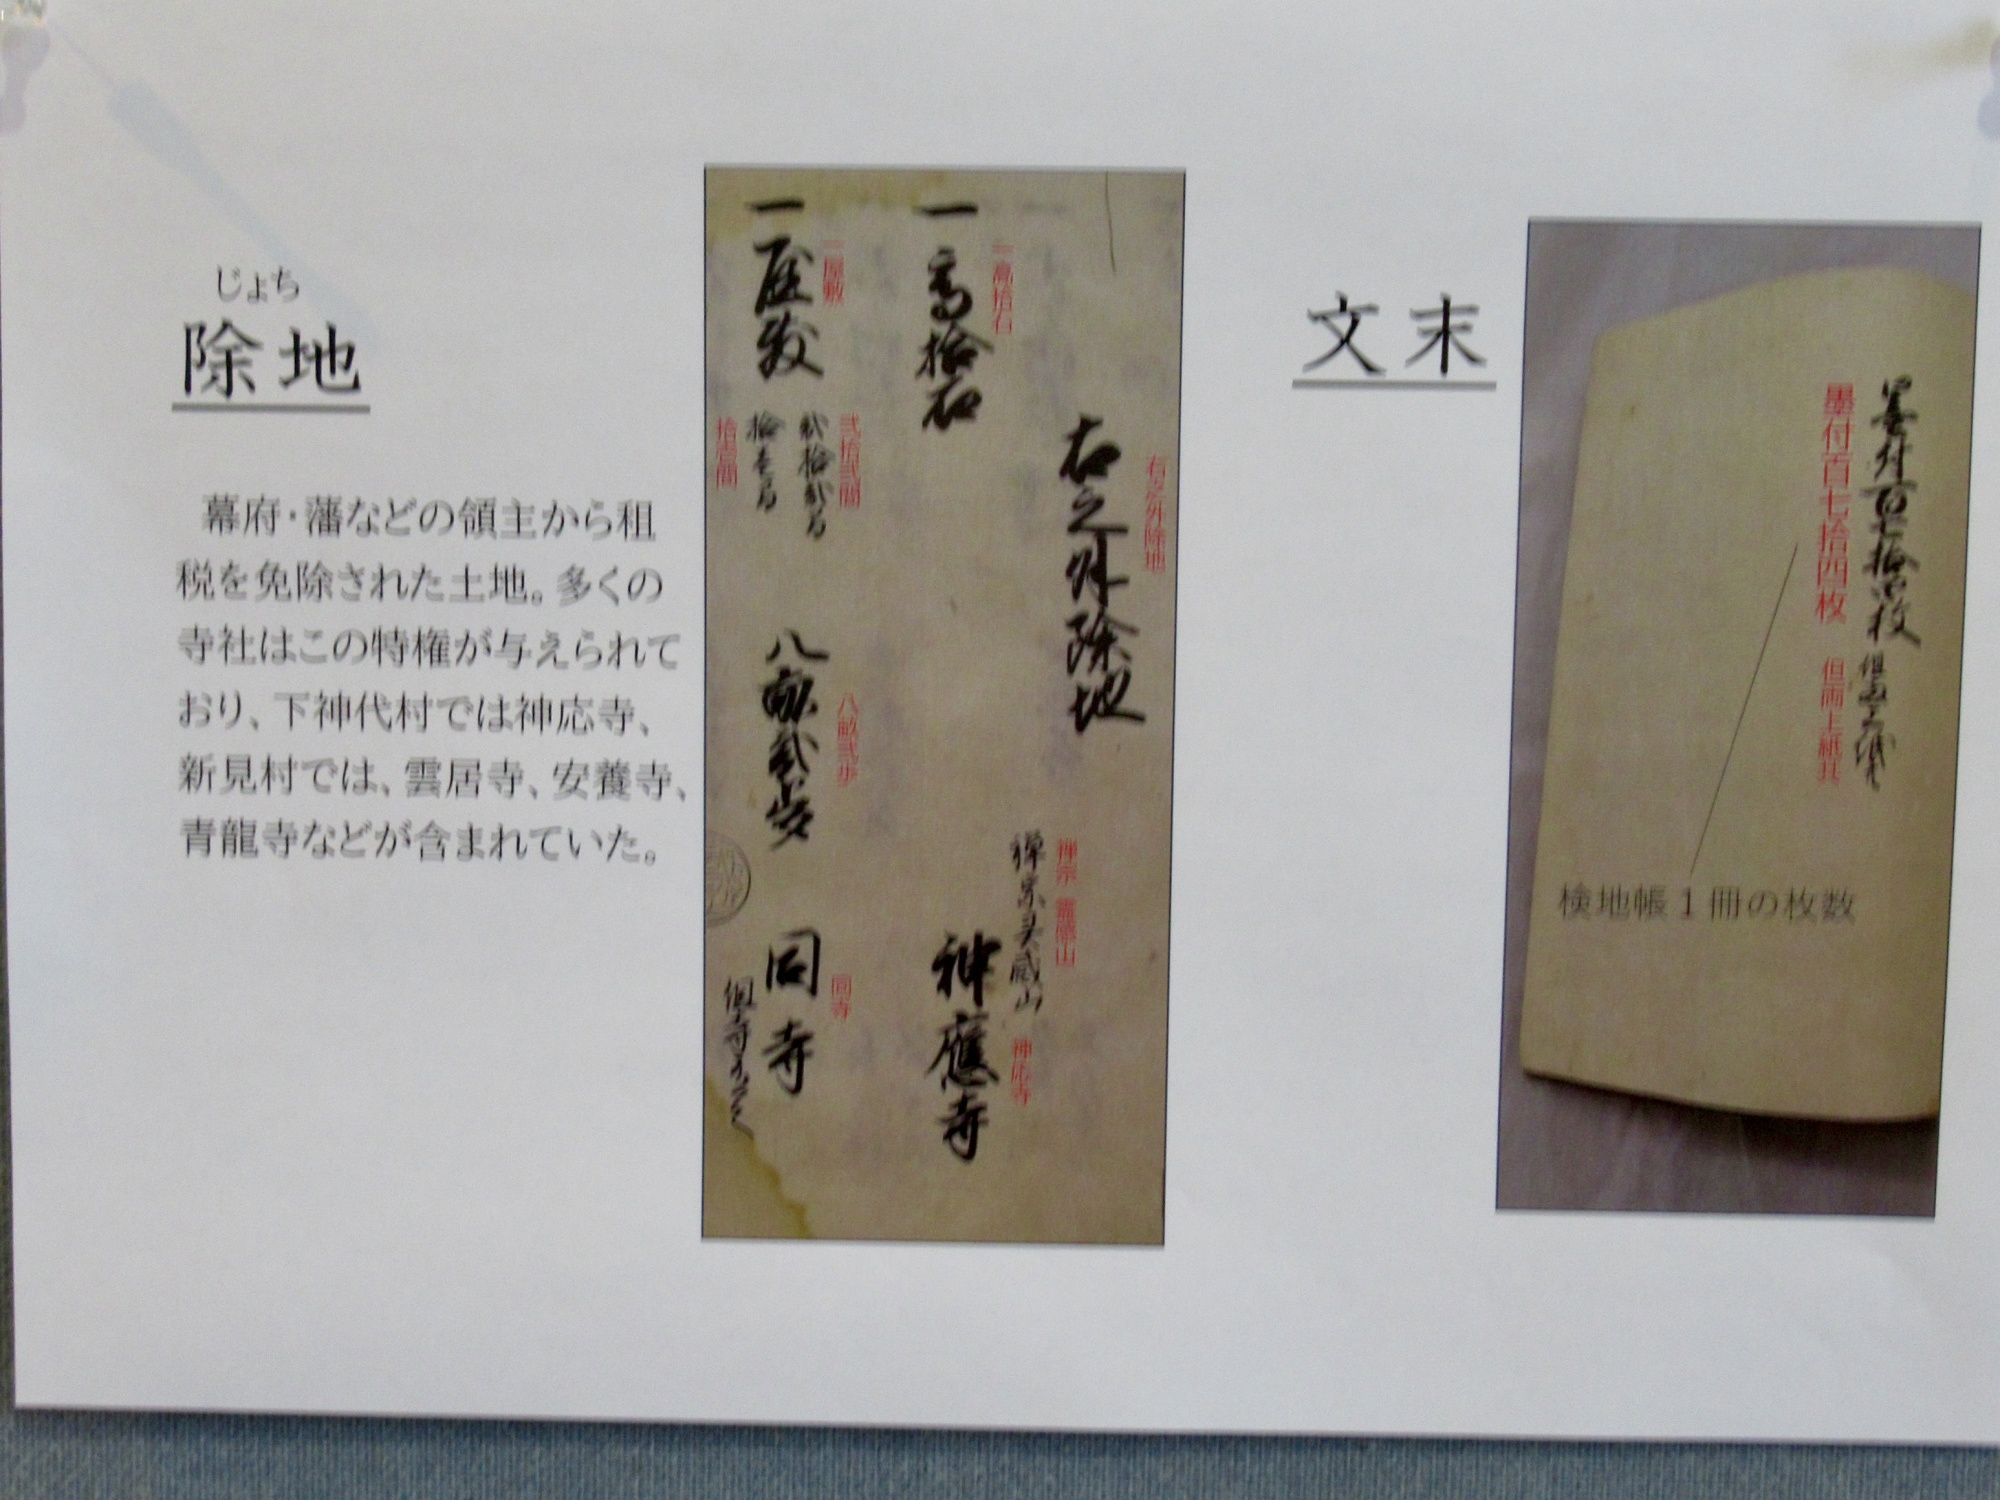 じょち
除地
幕府・藩などの領主から租
税を免除された土地。多くの
寺社はこの特権が与えられて
おり、下神代村では神応寺、
新見村では、雲居寺、安養寺、
青龍寺などが含まれていた。
右之外除地
右之外除地
一高拾石
一高拾石
禅宗 霊感山
神応寺
神應寺
一屋敷
一屋敷
弐拾弐間
弐拾弐間
拾壱間
拾壱間
八畝弐歩
八畝弐歩
同寺
同寺
文末
墨付百七拾四枚
墨付百七拾四枚 但両上紙共
検地帳1冊の枚数